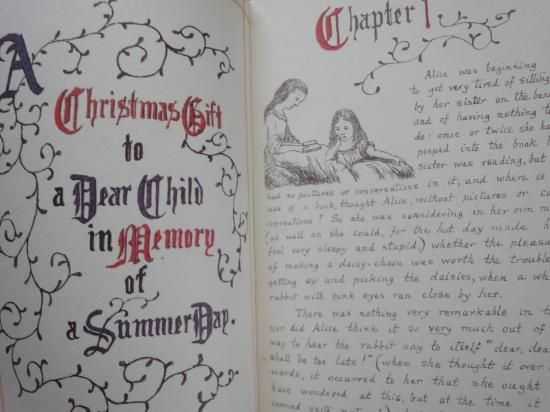 A
Christmas Gift
to
a Dear Child
in Memory
of
a Summer Day.
Chapter 1
Alice was beginning
to get very tired of sitting
by her sister on the bank
and of having nothing to
do: once or twice she had
peeped into the book
sister was reading, but
had no pictures or conversations in it, and where is
use of a book, thought Alice, without pictures or
versations? So she was considering in her own
(as well as she could, for the hot day made
feel very sleepy and stupid,) whether the pleasure
of making a daisy-chain was worth the trouble
getting up and picking the daisies, when a
rabbit with pink eyes ran close by her.
There was nothing very remarkable in
nor did Alice think it so very much out of
way to hear the rabbit say to itself "dear, dear
shall be too late!" (when she thought it over
wards, it occurred to her that she ought
have wondered at this, but at the time it
seemed quite